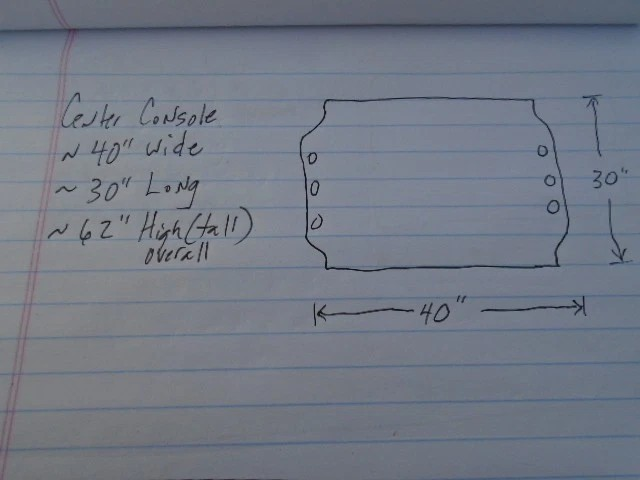 Center Console
~ 40" Wide
~ 30" Long
~ 62" High (tall)
overall
30"
40"